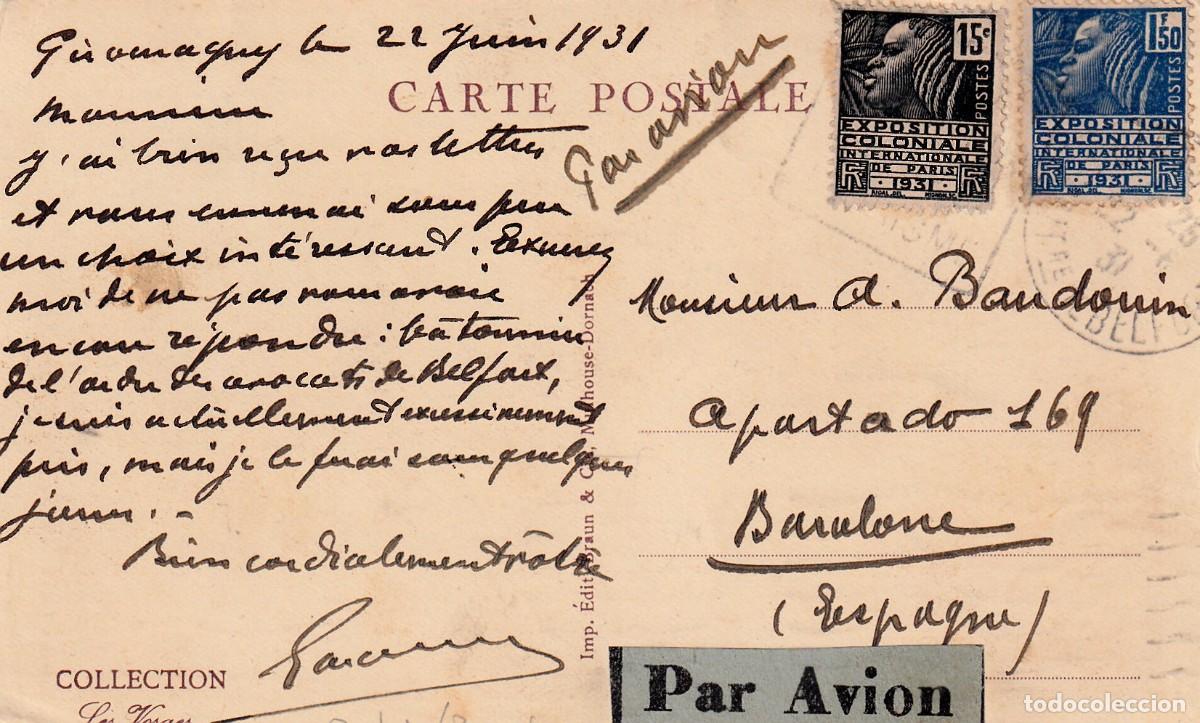 Giromagny le 22 Juin 1931
Monsieur
j'ai bien reçu vos lettres
et vous enverrai sous peu
un choix intéressant. Excusez
moi de ne pas vous avoir
encore répondu: bâtonnier
de l'ordre des avocats de Belfort,
je suis actuellement excessivement
pris, mais je le ferai sous quelques
jours. -
Bien cordialement vôtre
COLLECTION
Les Vosges
CARTE POSTALE
Par avion
Imp. Édit. Braun & Cie, Mulhouse-Dornach
15c
POSTES
EXPOSITION
COLONIALE
INTERNATIONALE
DE PARIS
1931
1F50
POSTES
EXPOSITION
COLONIALE
INTERNATIONALE
DE PARIS
1931
BELFORT
Monsieur A. Baudouin
Apartado 169
Barcelone
(Espagne)
Par Avion
todocoleccion